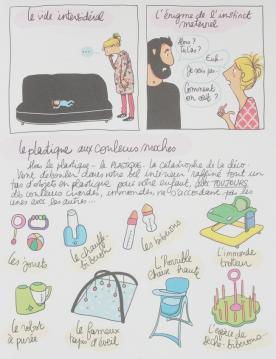 Le vide intersidéral
L'énigme de l'instinct
maternel
...
Alors ?
Tu l'as ?
Euh...
Je sais pas
Comment
on sait ?
Le plastique aux couleurs moches
le plastique - le PLASTIQUE - la catastrophe de la déco.
Vont débouler dans votre bel intérieur raffiné tout un
tas d'objets en plastique pour votre enfant, TOUJOURS
de couleurs criardes, immondes, ne s'accordant pas les
unes avec les autres...
les jouets
le chauffe-
biberon
les biberons
L'horrible
chaise haute
L'immonde
trotteur
le robot
à purée
le fameux
tapis d'éveil
L'espèce de
sèche-biberons